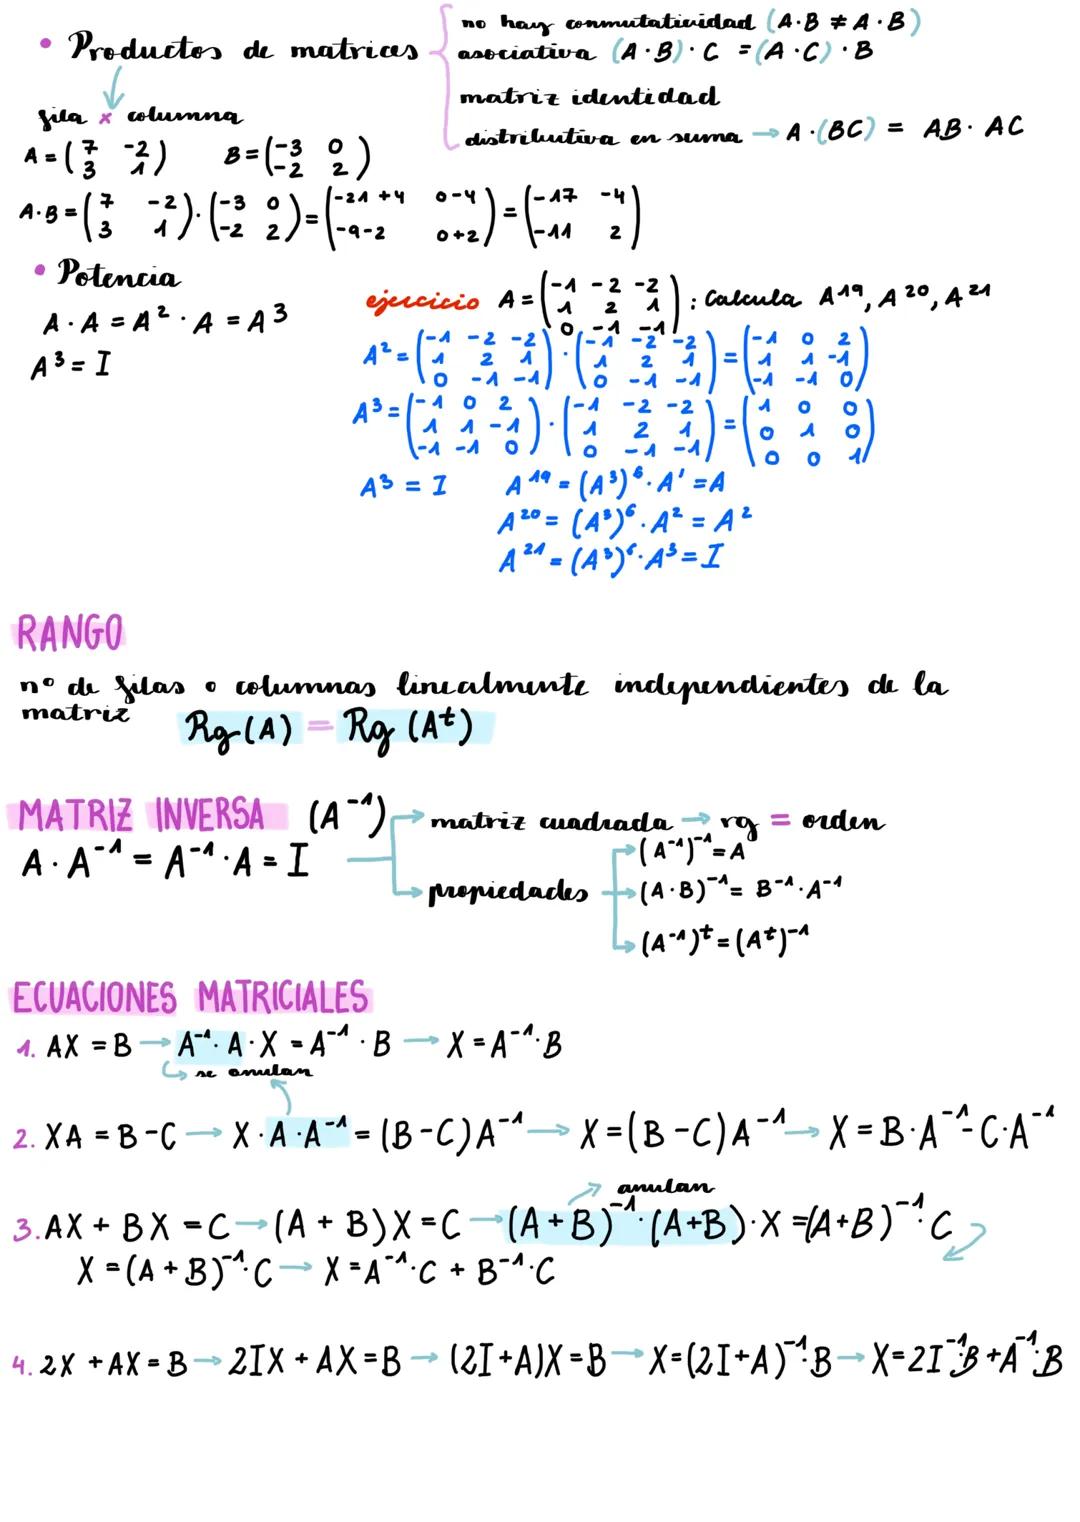 • Productos de matrices
no hay conmutatividad (A·B ≠ A·B)
asociativa (A·B)·C = (A·C)·B
matriz identidad
distributiva en suma → A·(BC) = AB·AC
fila x columna
A = (7 -2; 3 1) B = (-3 0; -2 2)
A·B = (7 -2; 3 1)·(-3 0; -2 2) = (-21+4 0-4; -9-2 0+2) = (-17 -4; -11 2)
• Potencia
A·A = A²·A = A³
A³ = I
ejercicio A = (-1 -2 -2; 1 2 1; 0 -1 -1) : Calcula A¹⁹, A²⁰, A²¹
A² = (-1 -2 -2; 1 2 1; 0 -1 -1)·(-1 -2 -2; 1 2 1; 0 -1 -1) = (-1 0 2; 1 1 -1; -1 -1 0)
A³ = (-1 0 2; 1 1 -1; -1 -1 0)·(-1 -2 -2; 1 2 1; 0 -1 -1) = (1 0 0; 0 1 0; 0 0 1)
A³ = I A¹⁹ = (A³)⁶·A' = A
A²⁰ = (A³)⁶·A² = A²
A²¹ = (A³)⁶·A³ = I
RANGO
nº de filas o columnas linealmente independientes de la
matriz
Rg(A) = Rg(Aᵗ)
MATRIZ INVERSA (A⁻¹)
A·A⁻¹ = A⁻¹·A = I
→ matriz cuadrada → rg = orden
→ propiedades
→ (A⁻¹)⁻¹ = A
→ (A·B)⁻¹ = B⁻¹·A⁻¹
→ (A⁻¹)ᵗ = (Aᵗ)⁻¹
ECUACIONES MATRICIALES
1. AX = B → A⁻¹·A·X = A⁻¹·B → X = A⁻¹·B
se anulan
2. XA = B-C → X·A·A⁻¹ = (B-C)A⁻¹ → X = (B-C)A⁻¹ → X = B·A⁻¹-C·A⁻¹
anulan
3. AX + BX = C → (A+B)X = C → (A+B)⁻¹·(A+B)·X = (A+B)⁻¹·C
X = (A+B)⁻¹·C → X = A⁻¹·C + B⁻¹·C
4. 2X + AX = B → 2IX + AX = B → (2I+A)X = B → X = (2I+A)⁻¹·B → X = 2I⁻¹·B + A⁻¹·B